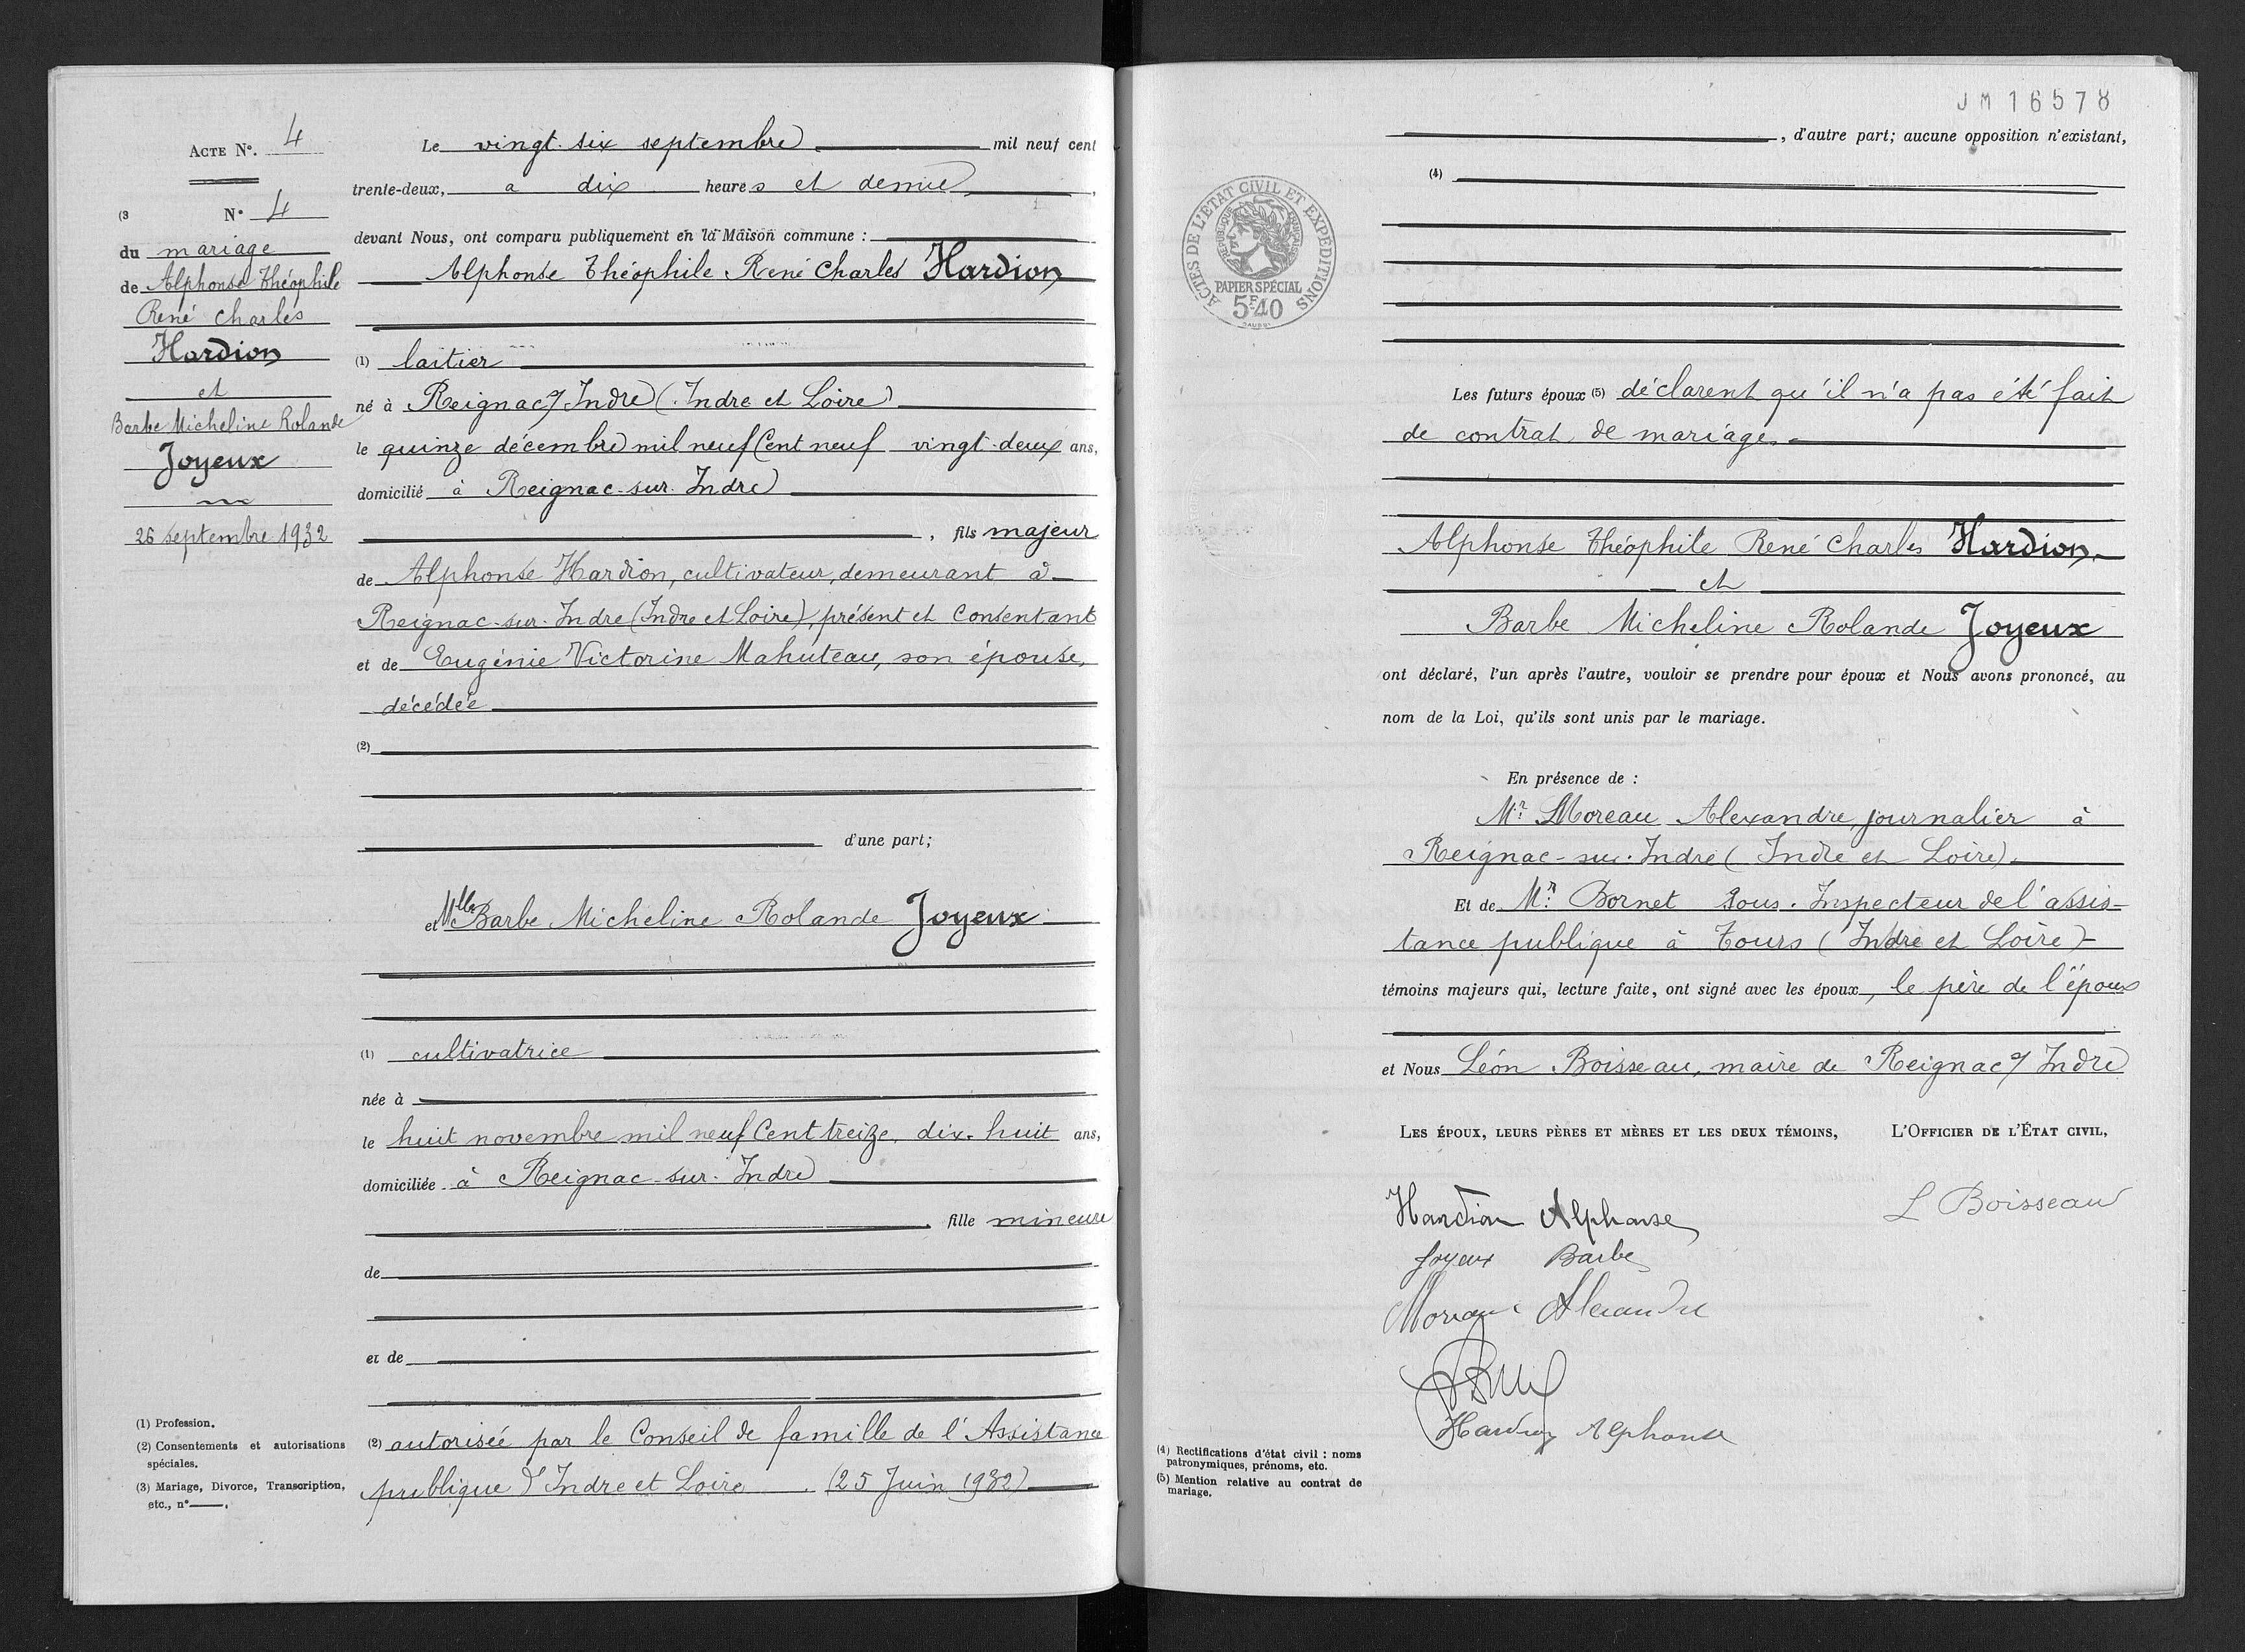 Acte N°. 4
(3 N° 4
du mariage
de Alphonse Théophile
René Charles
Hardion
et
Barbe Micheline Rolande
Joyeux
26 septembre 1932
Le vingt-six septembre mil neuf cent
trente-deux, a dix heures et demie,
devant Nous, ont comparu publiquement en la Maison commune :
Alphonse Théophile René Charles Hardion
(1) laitier
né à Reignac s/ Indre (Indre et Loire)
le quinze décembre mil neuf Cent neuf vingt-deux ans,
domicilié à Reignac-sur-Indre
, fils majeur
de Alphonse Hardion, cultivateur, demeurant à
Reignac-sur-Indre (Indre et Loire), présent et Consentant
et de Eugénie Victorine Mahuteau, son épouse,
décédée
(2)
d'une part;
et Mlle Barbe Micheline Rolande Joyeux
(1) cultivatrice
née à
le huit novembre mil neuf Cent treize, dix-huit ans,
domiciliée à Reignac-sur-Indre
, fille mineure
de
et de
(2) autorisée par le Conseil de famille de l'Assistance
publique d'Indre et Loire. (25 Juin 1932)
(1) Profession.
(2) Consentements et autorisations
spéciales.
(3) Mariage, Divorce, Transcription,
etc., n° .
JM 16578
, d'autre part; aucune opposition n'existant,
(4)
ACTES DE L'ETAT CIVIL ET EXPEDITIONS
REPUBLIQUE FRANÇAISE
PAPIER SPÉCIAL
5F40
Les futurs époux (5) déclarent qu'il n'a pas été fait
de contrat de mariage.
Alphonse Théophile René Charles Hardion
et
Barbe Micheline Rolande Joyeux
ont déclaré, l'un après l'autre, vouloir se prendre pour époux et Nous avons prononcé, au
nom de la Loi, qu'ils sont unis par le mariage.
En présence de :
Mr. Moreau Alexandre, journalier à
Reignac-sur-Indre (Indre et Loire).
Et de Mr. Bornet Sous-Inspecteur de l'assis-
tance publique à Tours (Indre et Loire)
témoins majeurs qui, lecture faite, ont signé avec les époux, le père de l'époux
et Nous Léon Boisseau, maire de Reignac s/ Indre
Les époux, leurs pères et mères et les deux témoins,
L'Officier de l'État civil,
Hardion Alphonse
L Boisseau
Joyeux Barbe
Moreau Alexandre
Hardion Alphonse
(4) Rectifications d'état civil : noms
patronymiques, prénoms, etc.
(5) Mention relative au contrat de
mariage.